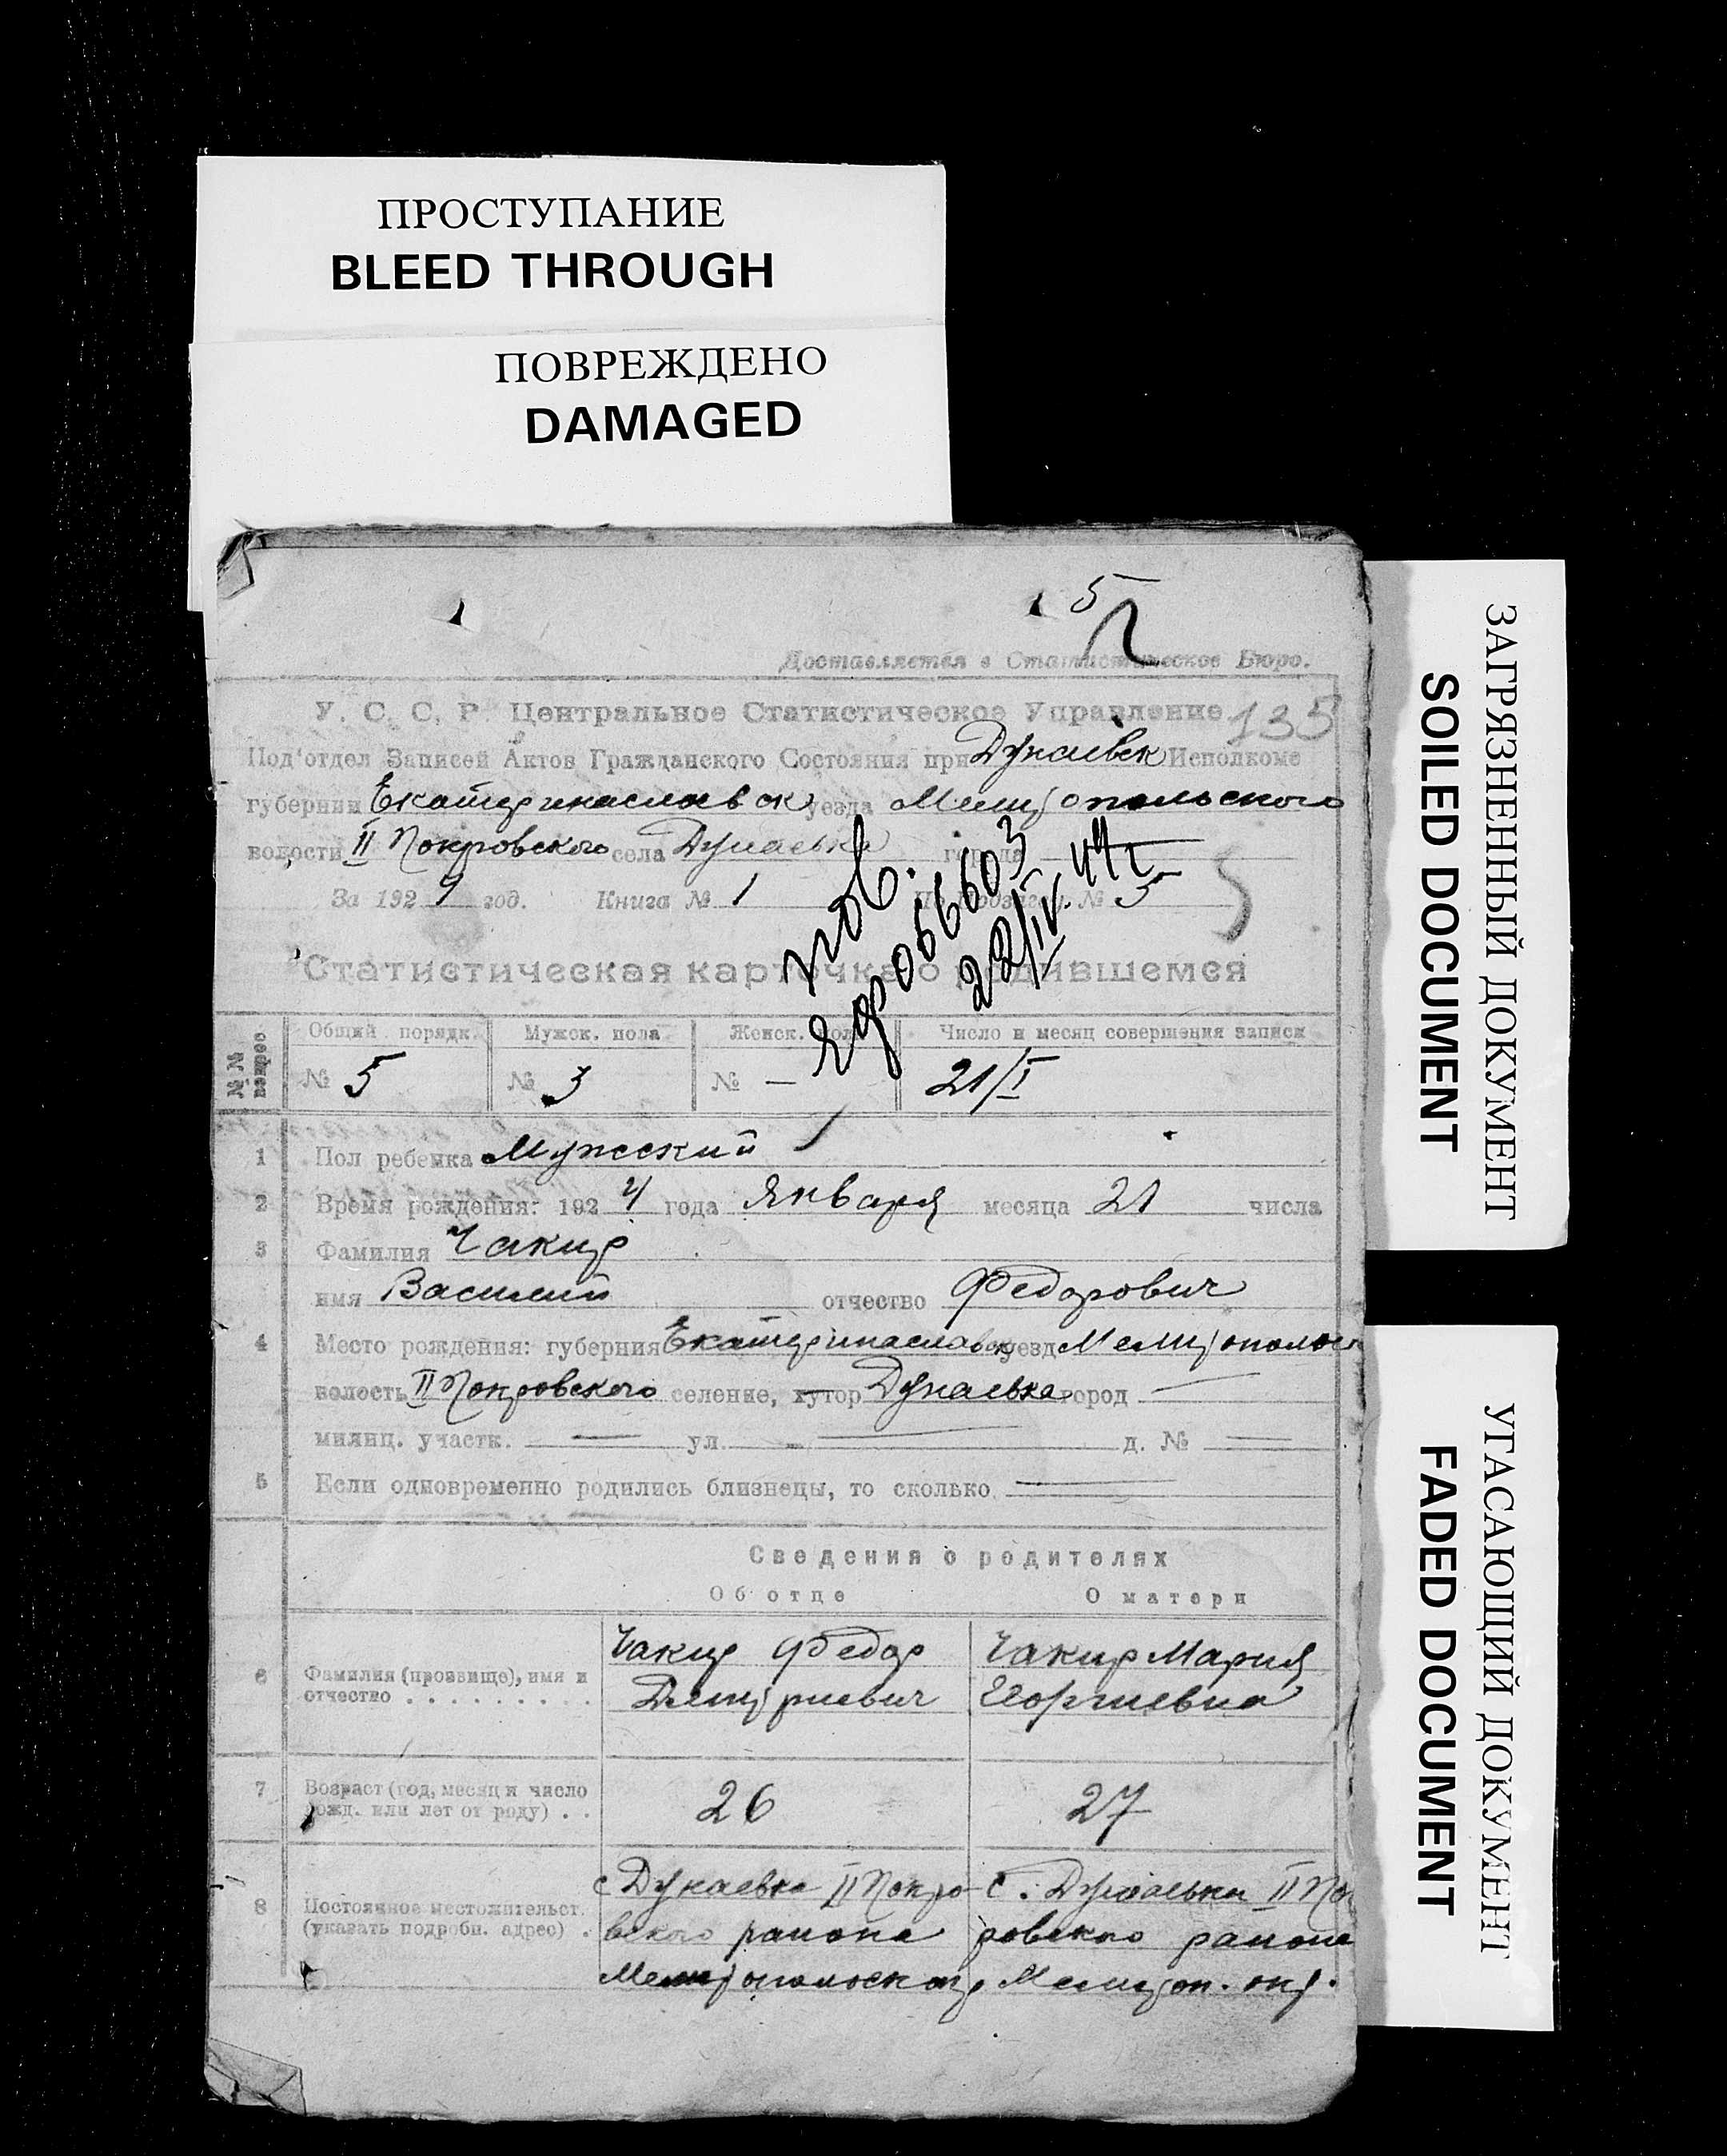 ПРОСТУПАНИЕ
BLEED THROUGH
ПОВРЕЖДЕНО
DAMAGED
5
Доставляется в Статистическое Бюро.
У. С. С. Р. Центральное Статистическое Управление 135
Под'отдел Записей Актов Гражданского Состояния при Дунаевск Исполкоме
губернии Екатеринаславск уезда Мелитопольского
волости II Покровского села Дунаевка города —
За 1924 год. Книга № 1 № 5
пов.
ЯР 066603
22/IV 44 г
Статистическая карточка о родившемся
№№ вопрос
Общий порядк. Мужск. пола Женск. пола Число и месяц совершения записи
№ 5 № 3 № — 21/I
1 Пол ребенка Мужский
2 Время рождения: 1924 года Января месяца 21 числа
3 Фамилия Чакир
имя Василий отчество Федорович
4 Место рождения: губерния Екатеринаславск уезд Мелитопольск
волость II Покровского селение, хутор Дунаевка город —
милиц. участк. — ул. — д. № —
5 Если одновременно родились близнецы, то сколько —
Сведения о родителях
Об отце О матери
6 Фамилия (прозвище), имя и отчество . . . . . . . . .
Чакир Федор
Дмитриевич
Чакир Мария
Егоргиевна
7 Возраст (год, месяц и число рожд. или лет от роду) . .
26 27
8 Постоянное местожительст. (указать подробн. адрес) .
с Дунаевка II Покро-
вского района
Мелитопольск окр
с. Дунаевки II Пок
ровского района
Мелитоп. окр.
ЗАГРЯЗНЕННЫЙ ДОКУМЕНТ
SOILED DOCUMENT
УГАСАЮЩИЙ ДОКУМЕНТ
FADED DOCUMENT